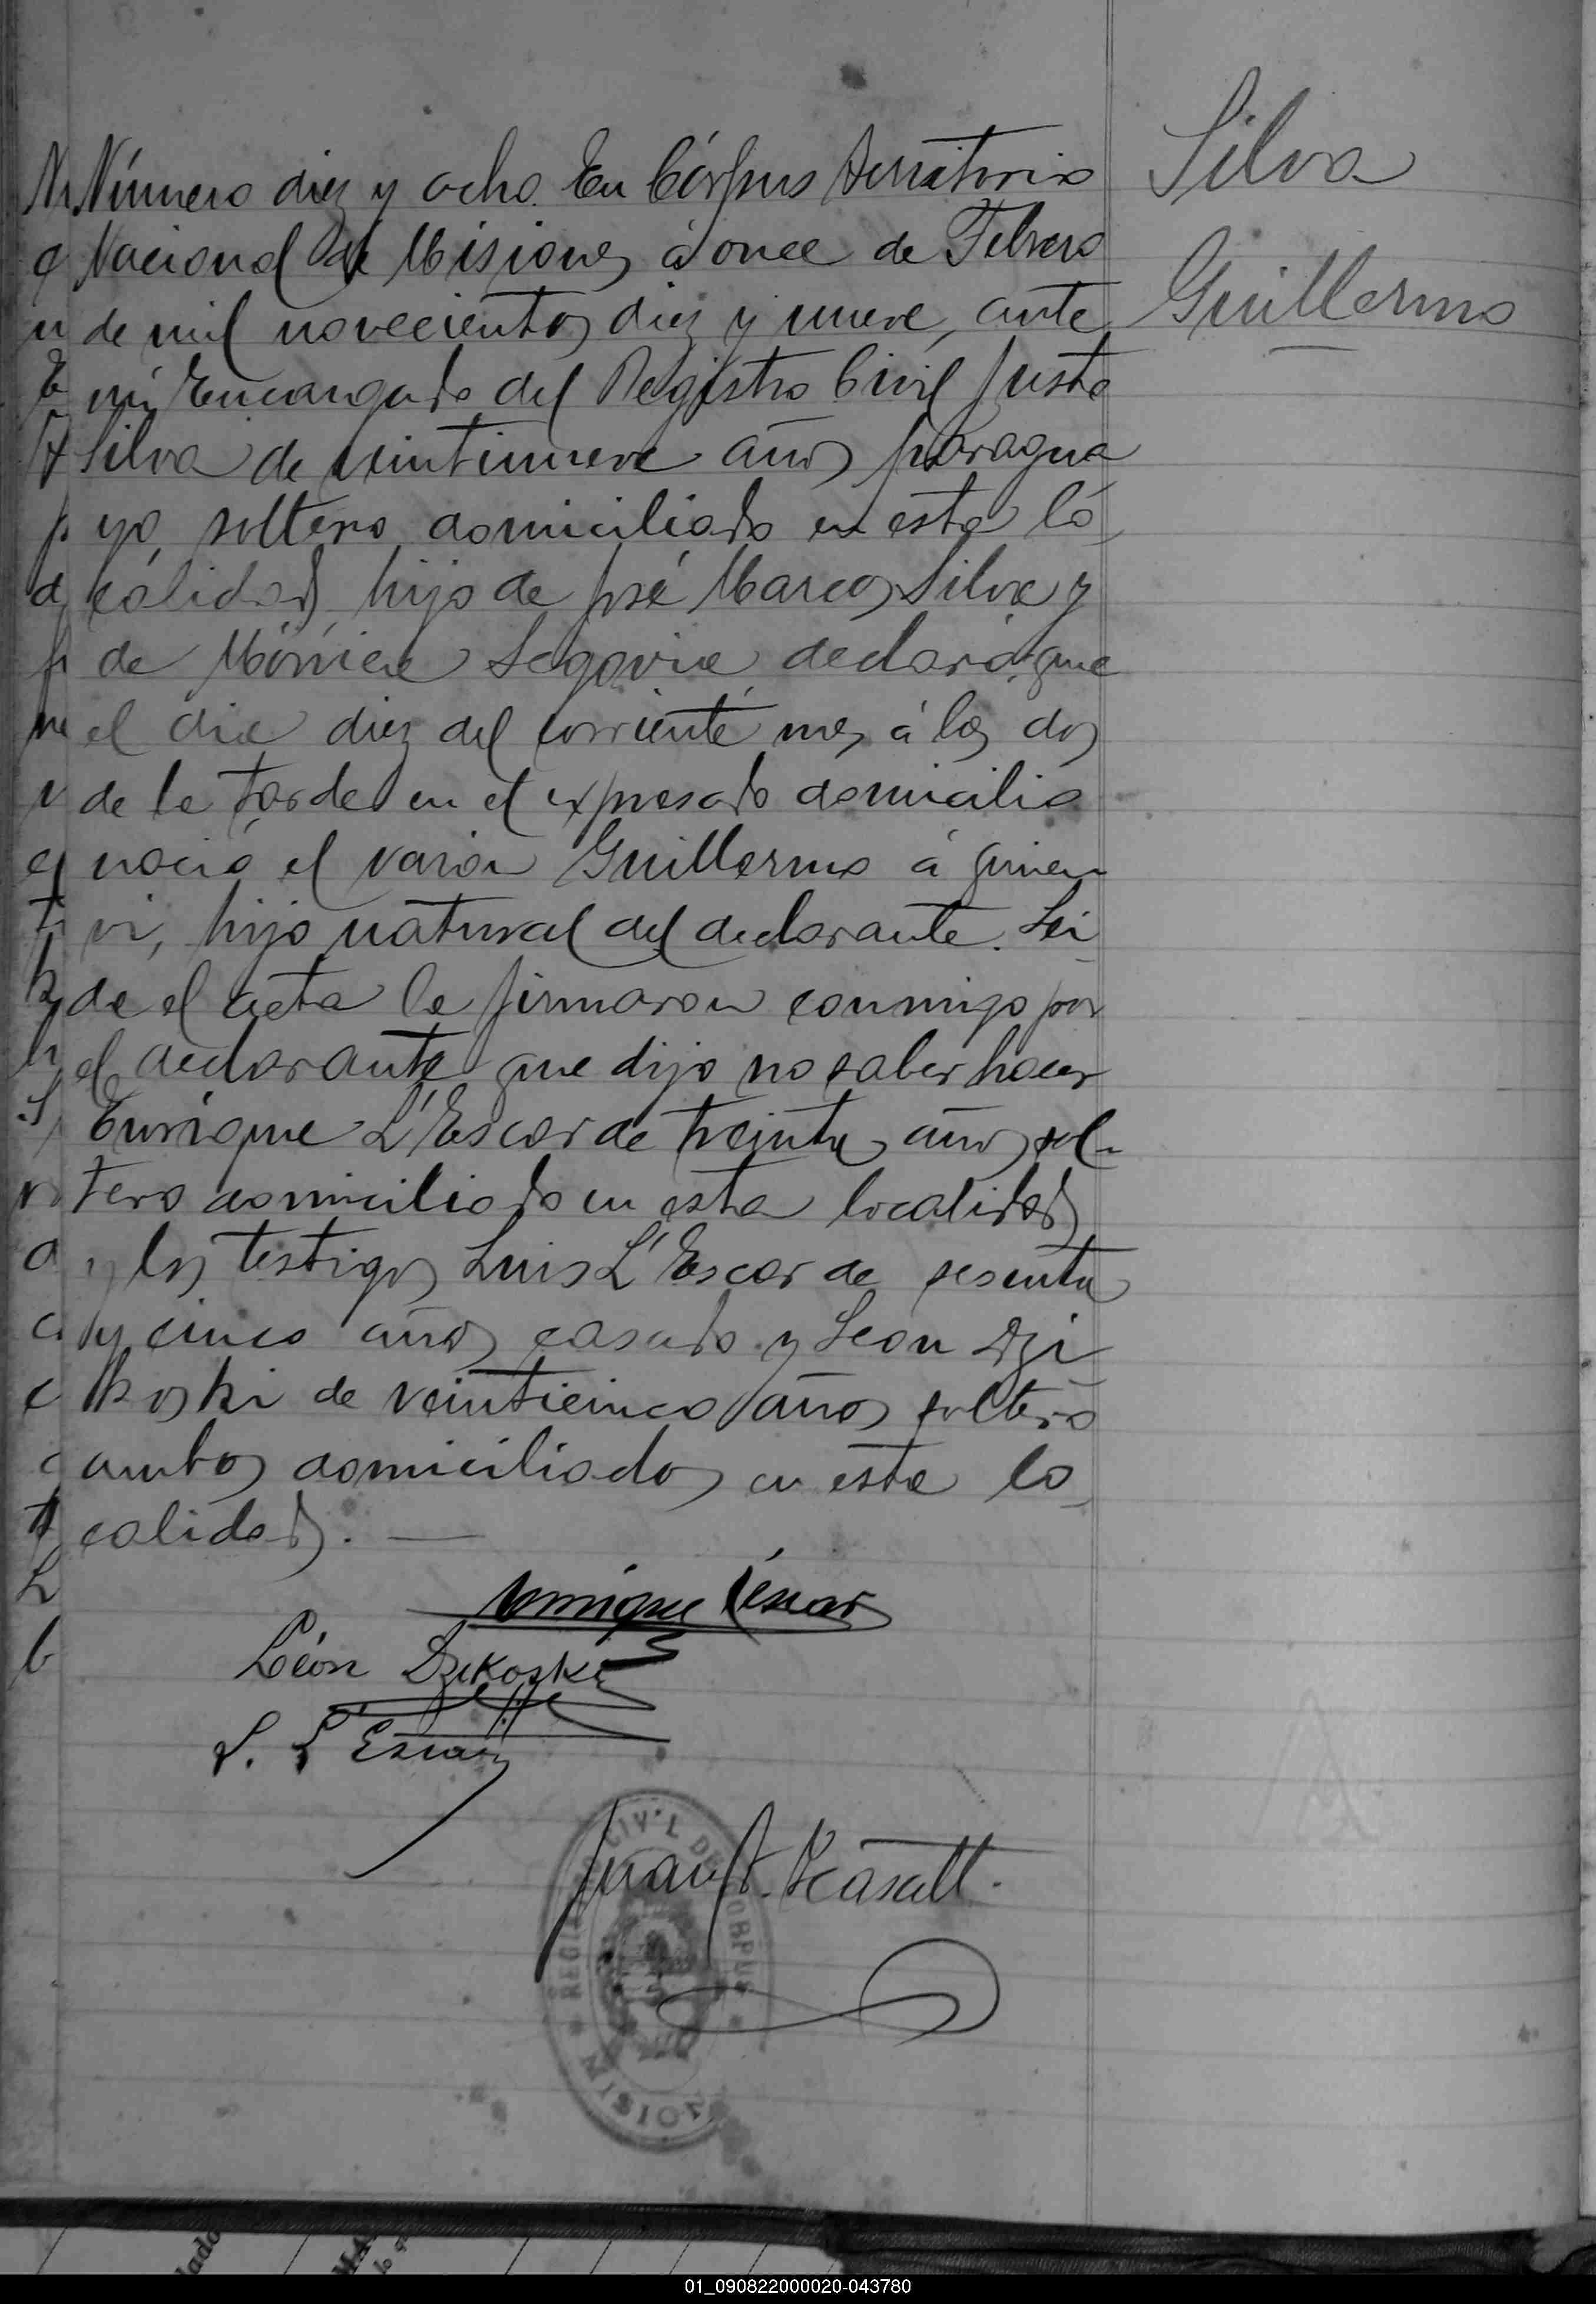 Silva
Guillermo
Número diez y ocho. En Córpus Territorio
Nacional de Misiones á once de Febrero
de mil novecientos diez y nueve, ante
mí Encargado del Registro Civil Justo
Silva de veintinueve años paragua
yo, soltero domiciliado en esta lo
calidad, hijo de José Marcos Silva y
de Mónica Segovia declaró que
el dia diez del corriente mes á las dos
de la tarde en el expresado domicilio
nació el varón Guillermo á quien
vi, hijo natural del declarante. Lei
da el acta la firmaron conmigo por
el declarante que dijo no saber hacer
Enrique L'Escar de treinta años sol-
tero domiciliado en esta localidad
y los testigos Luis L'Escar de sesenta
y cinco años casado y Leon Dzi
koski de veinticinco años soltero
ambos domiciliados en esta lo
calidad. —
Enrique L'Escar
Léon Dzikoski
L. L'Escar
Juan
REGISTRO CIVIL DE CORPUS
MISIONES
01_090822000020-043780